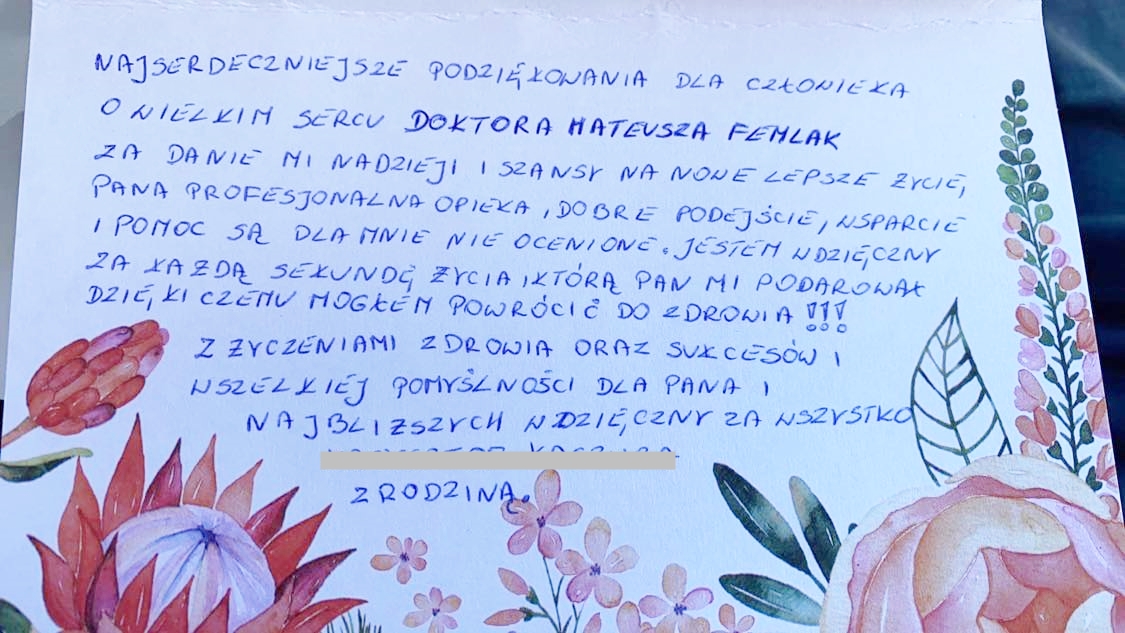 NAJSERDECZNIEJSZE PODZIĘKOWANIA DLA CZŁOWIEKA
O WIELKIM SERCU DOKTORA MATEUSZA FEMLAK
ZA DANIE MI NADZIEJI I SZANSY NA NOWE LEPSZE ŻYCIE,
PANA PROFESJONALNA OPIEKA, DOBRE PODEJŚCIE, WSPARCIE
I POMOC SĄ DLA MNIE NIE OCENIONE. JESTEM WDZIĘCZNY
ZA KAŻDĄ SEKUNDĘ ŻYCIA, KTÓRĄ PAN MI PODAROWAŁ
DZIĘKI CZEMU MOGŁEM POWRÓCIĆ DO ZDROWIA!!!
Z ŻYCZENIAMI ZDROWIA ORAZ SUKCESÓW I
WSZELKIEJ POMYŚLNOŚCI DLA PANA I
NAJBLIŻSZYCH WDZIĘCZNY ZA WSZYSTKO
Z RODZINĄ.